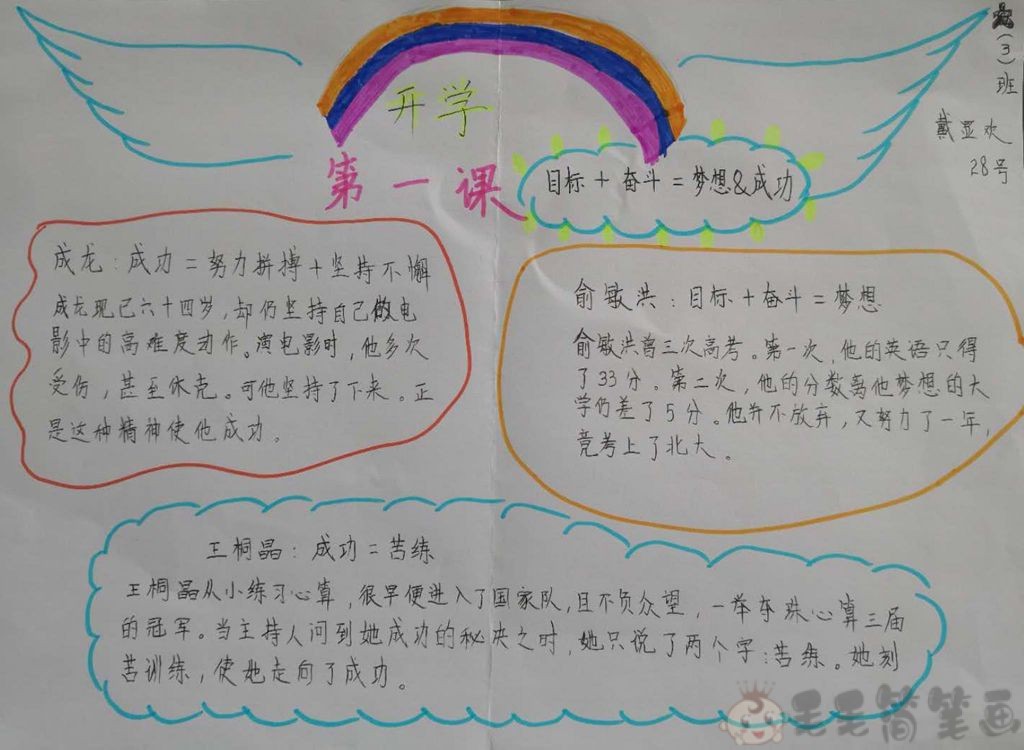 开学
第一课
(3)班
戴显欢
28号
目标+奋斗=梦想&成功
成龙:成功=努力拼搏+坚持不懈
成龙现已六十四岁,却仍坚持自己做电
影中的高难度动作。演电影时,他多次
受伤,甚至休克。可他坚持了下来。正
是这种精神使他成功。
俞敏洪:目标+奋斗=梦想
俞敏洪曾三次高考。第一次,他的英语只得
了33分。第二次,他的分数离他梦想的大
学仍差了5分。他并不放弃,又努力了一年,
竟考上了北大。
王桐晶:成功=苦练
王桐晶从小练习心算,很早便进入了国家队,且不负众望,一举夺珠心算三届
的冠军。当主持人问到她成功的秘决之时,她只说了两个字:苦练。她刻
苦训练,使她走向了成功。
毛毛简笔画